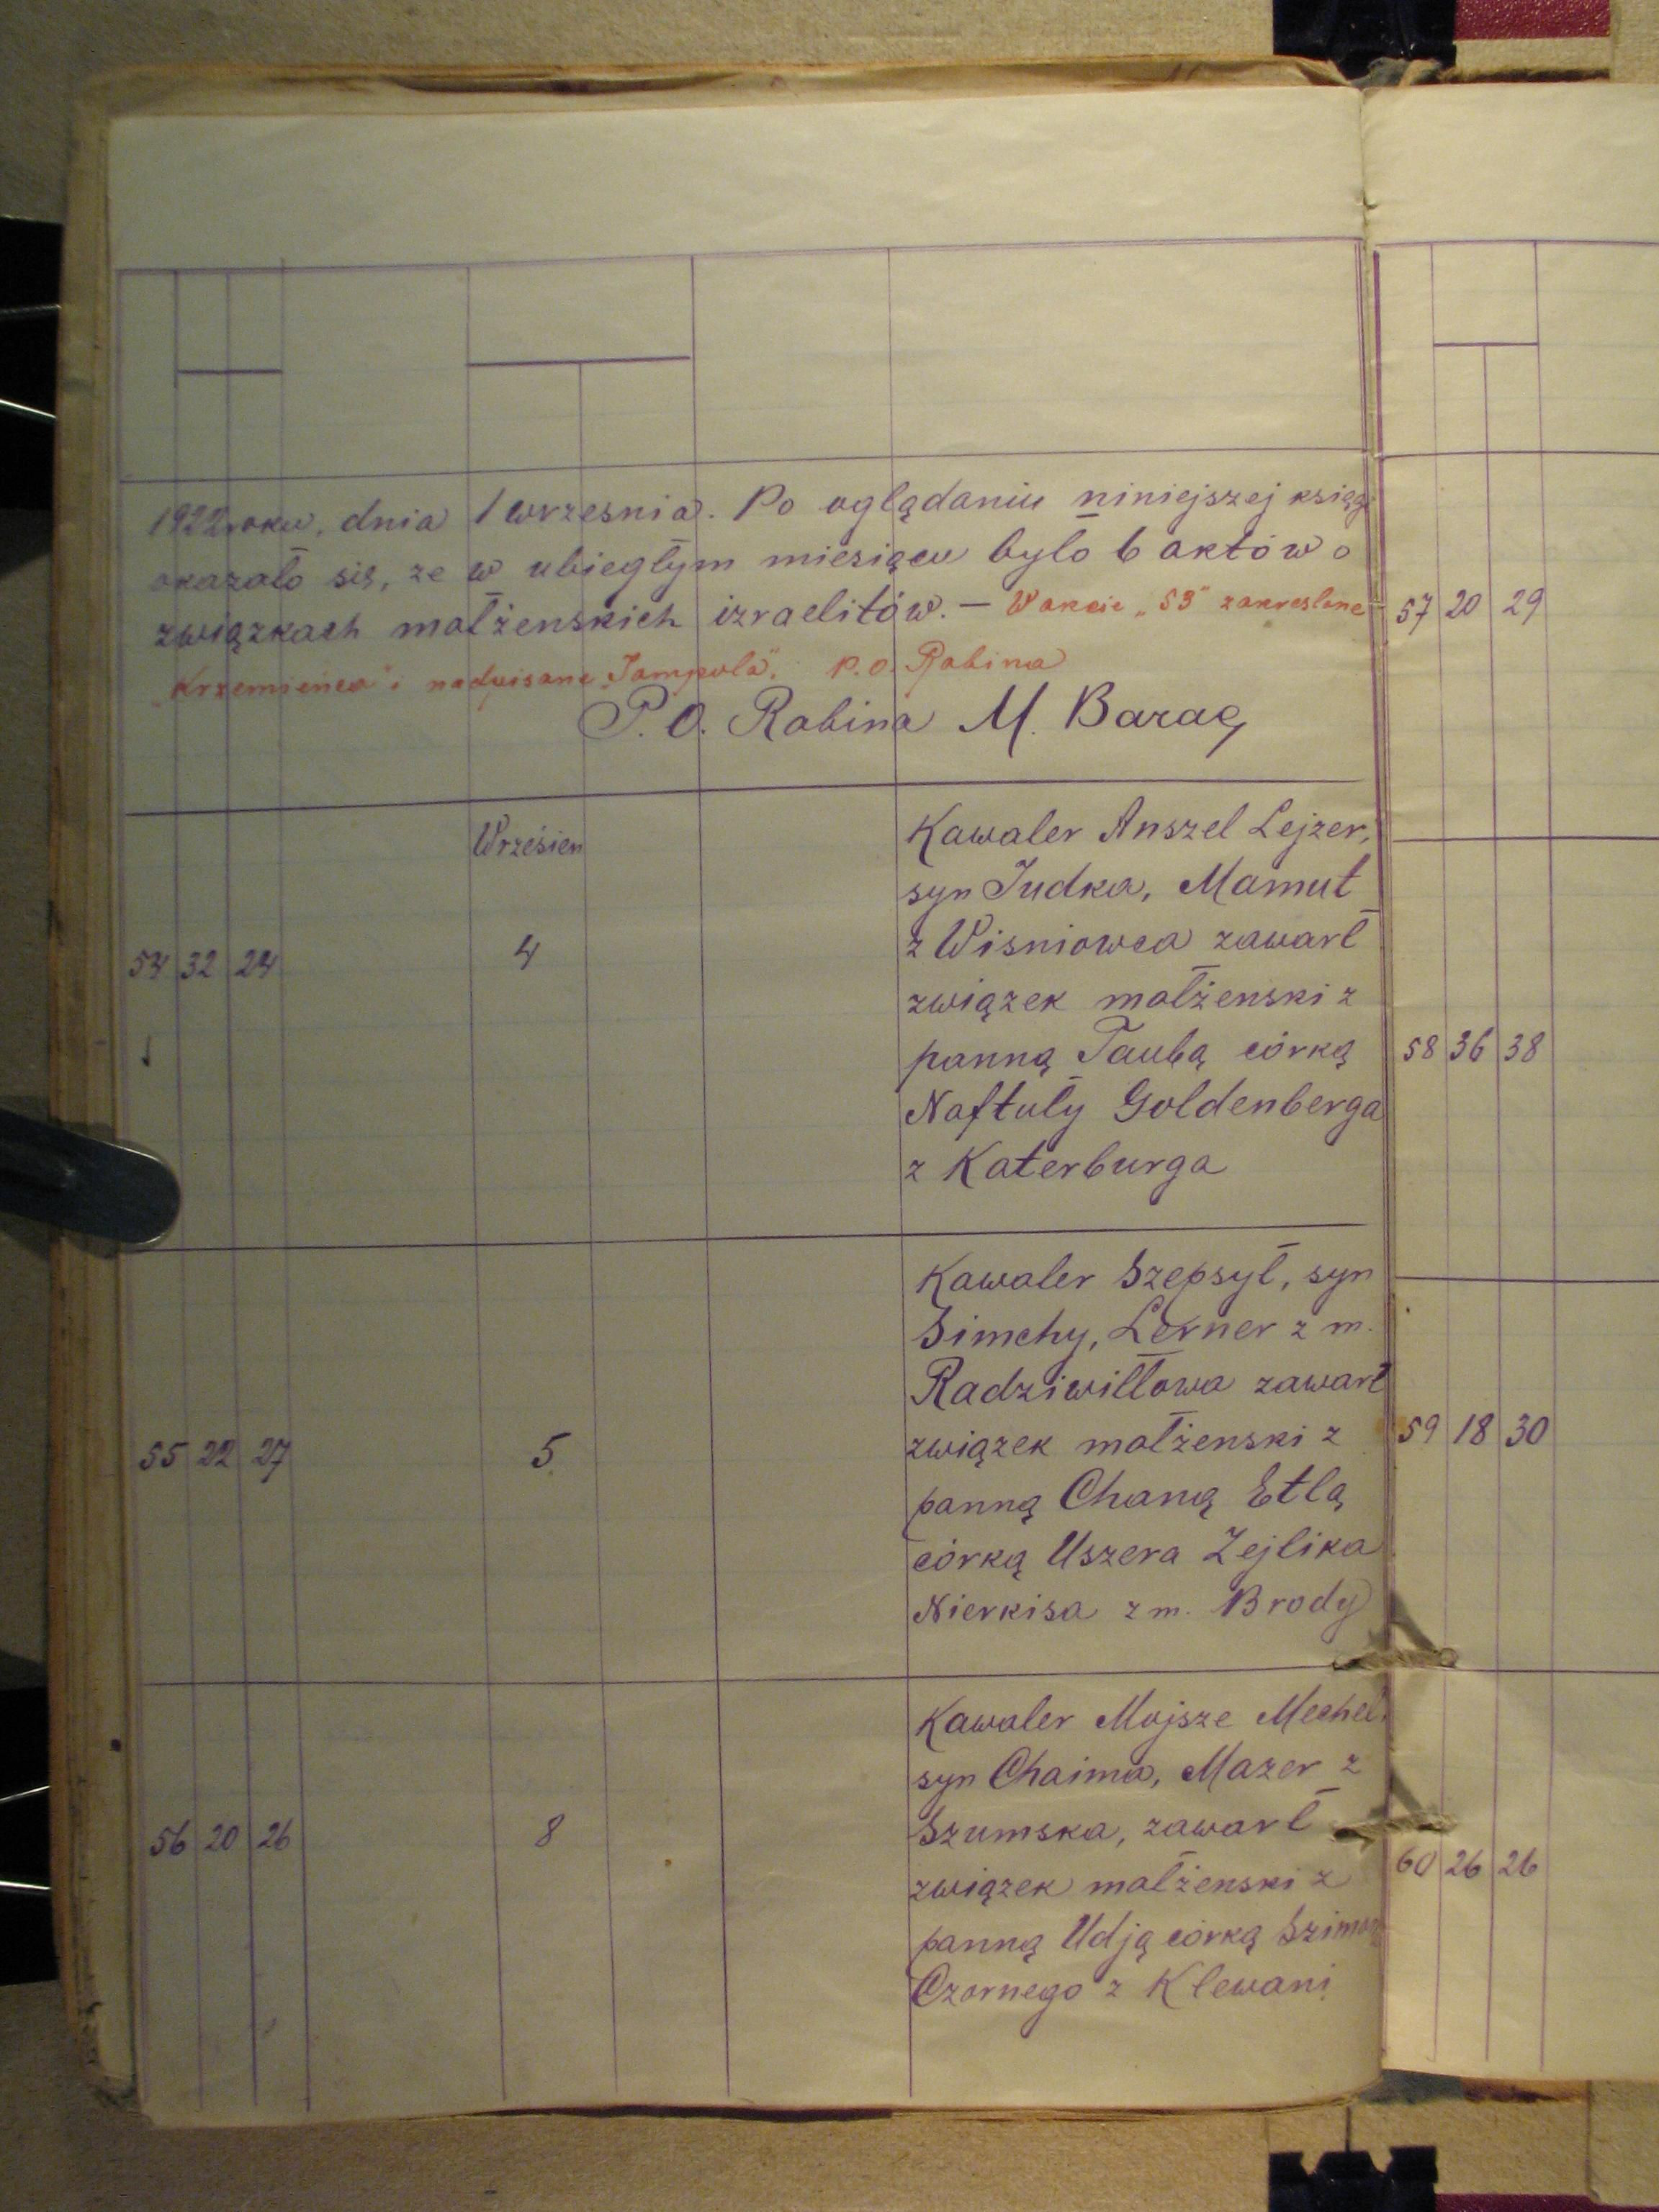 1922 roku, dnia 1 wrzesnia. Po oglądaniu niniejszej księgi
okazało się, ze w ubiegłym miesiącu było 6 aktów o
związkach małżenskich izraelitów. — W akcie „53" zakreslone
„Krzemieńca" i nadpisane „Jampola". P.O. Rabina
P.O. Rabina M. Barac
Wrzésien
54 32 24 4
Kawaler Anszel Lejzer,
syn Judka, Mamut
z Wisniowca zawarł
związek małżenski z
panną Taubą córką
Naftuły Goldenberga
z Katerburga
55 22 27 5
Kawaler Szepsyl, syn
Simchy, Lerner z m.
Radziwiłłowa zawarł
związek małżenski z
panną Chaną Etlą
córką Uszera Zejlika
Nierkisa z m. Brody
56 20 26 8
Kawaler Mojsze Mechel,
syn Chaima, Mazer z
Szumska, zawarł
związek małżenski z
panną Udją córką
Czornego z Klewani
57 20 29
58 36 38
59 18 30
60 26 26